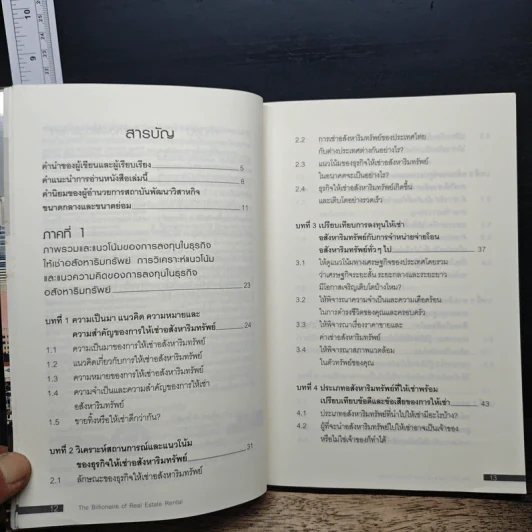 สารบัญ
คำนำของผู้เขียนและผู้เรียบเรียง 5
คำแนะนำการอ่านหนังสือเล่มนี้ 6
คำนิยมของผู้อำนวยการสถาบันพัฒนาวิสาหกิจ
ขนาดกลางและขนาดย่อม 11
ภาคที่ 1
ภาพรวมและแนวโน้มของการลงทุนในธุรกิจ
ให้เช่าอสังหาริมทรัพย์ การวิเคราะห์แนวโน้ม
และแนวความคิดของการลงทุนในธุรกิจ
อสังหาริมทรัพย์ 23
บทที่ 1 ความเป็นมา แนวคิด ความหมายและ
ความสำคัญของการให้เช่าอสังหาริมทรัพย์ 24
1.1 ความเป็นมาของการให้เช่าอสังหาริมทรัพย์
1.2 แนวคิดเกี่ยวกับการให้เช่าอสังหาริมทรัพย์
1.3 ความหมายของการให้เช่าอสังหาริมทรัพย์
1.4 ความจำเป็นและความสำคัญของการให้เช่า
อสังหาริมทรัพย์
1.5 ขายทิ้งหรือให้เช่าดีกว่ากัน?
บทที่ 2 วิเคราะห์สถานการณ์และแนวโน้ม
ของธุรกิจให้เช่าอสังหาริมทรัพย์ 31
2.1 ลักษณะของธุรกิจให้เช่าอสังหาริมทรัพย์
12 The Billionaire of Real Estate Rental
2.2 การเช่าอสังหาริมทรัพย์ของประเทศไทย
กับต่างประเทศต่างกันอย่างไร?
2.3 แนวโน้มของธุรกิจให้เช่าอสังหาริมทรัพย์
ในอนาคตจะเป็นอย่างไร?
2.4 ธุรกิจให้เช่าอสังหาริมทรัพย์เกิดขึ้น
และเติบโตอย่างรวดเร็ว
บทที่ 3 เปรียบเทียบการลงทุนให้เช่า
อสังหาริมทรัพย์กับการจำหน่ายจ่ายโอน
อสังหาริมทรัพย์ทั่วๆ ไป 37
3.1 ให้ดูแนวโน้มทางเศรษฐกิจของประเทศโดยรวม
ว่าเศรษฐกิจระยะสั้น ระยะกลางและระยะยาว
มีโอกาสเจริญเติบโตบ้างไหม?
3.2 ให้พิจารณาความจำเป็นและความเดือดร้อน
ในการดำรงชีวิตของคุณและครอบครัว
3.3 ให้พิจารณาเรื่องราคาขายและ
ค่าเช่าอสังหาริมทรัพย์
3.4 ให้พิจารณาสภาพแวดล้อม
ในตัวทรัพย์ของคุณ
บทที่ 4 ประเภทอสังหาริมทรัพย์ที่ให้เช่าพร้อม
เปรียบเทียบข้อดีและข้อเสียของการให้เช่า 43
4.1 ประเภทอสังหาริมทรัพย์ที่นำไปให้เช่ามีอะไรบ้าง?
4.2 ผู้ที่จะนำอสังหาริมทรัพย์ไปให้เช่าอาจเป็นเจ้าของ
หรือไม่ใช่เจ้าของก็ทำได้
13
10
9